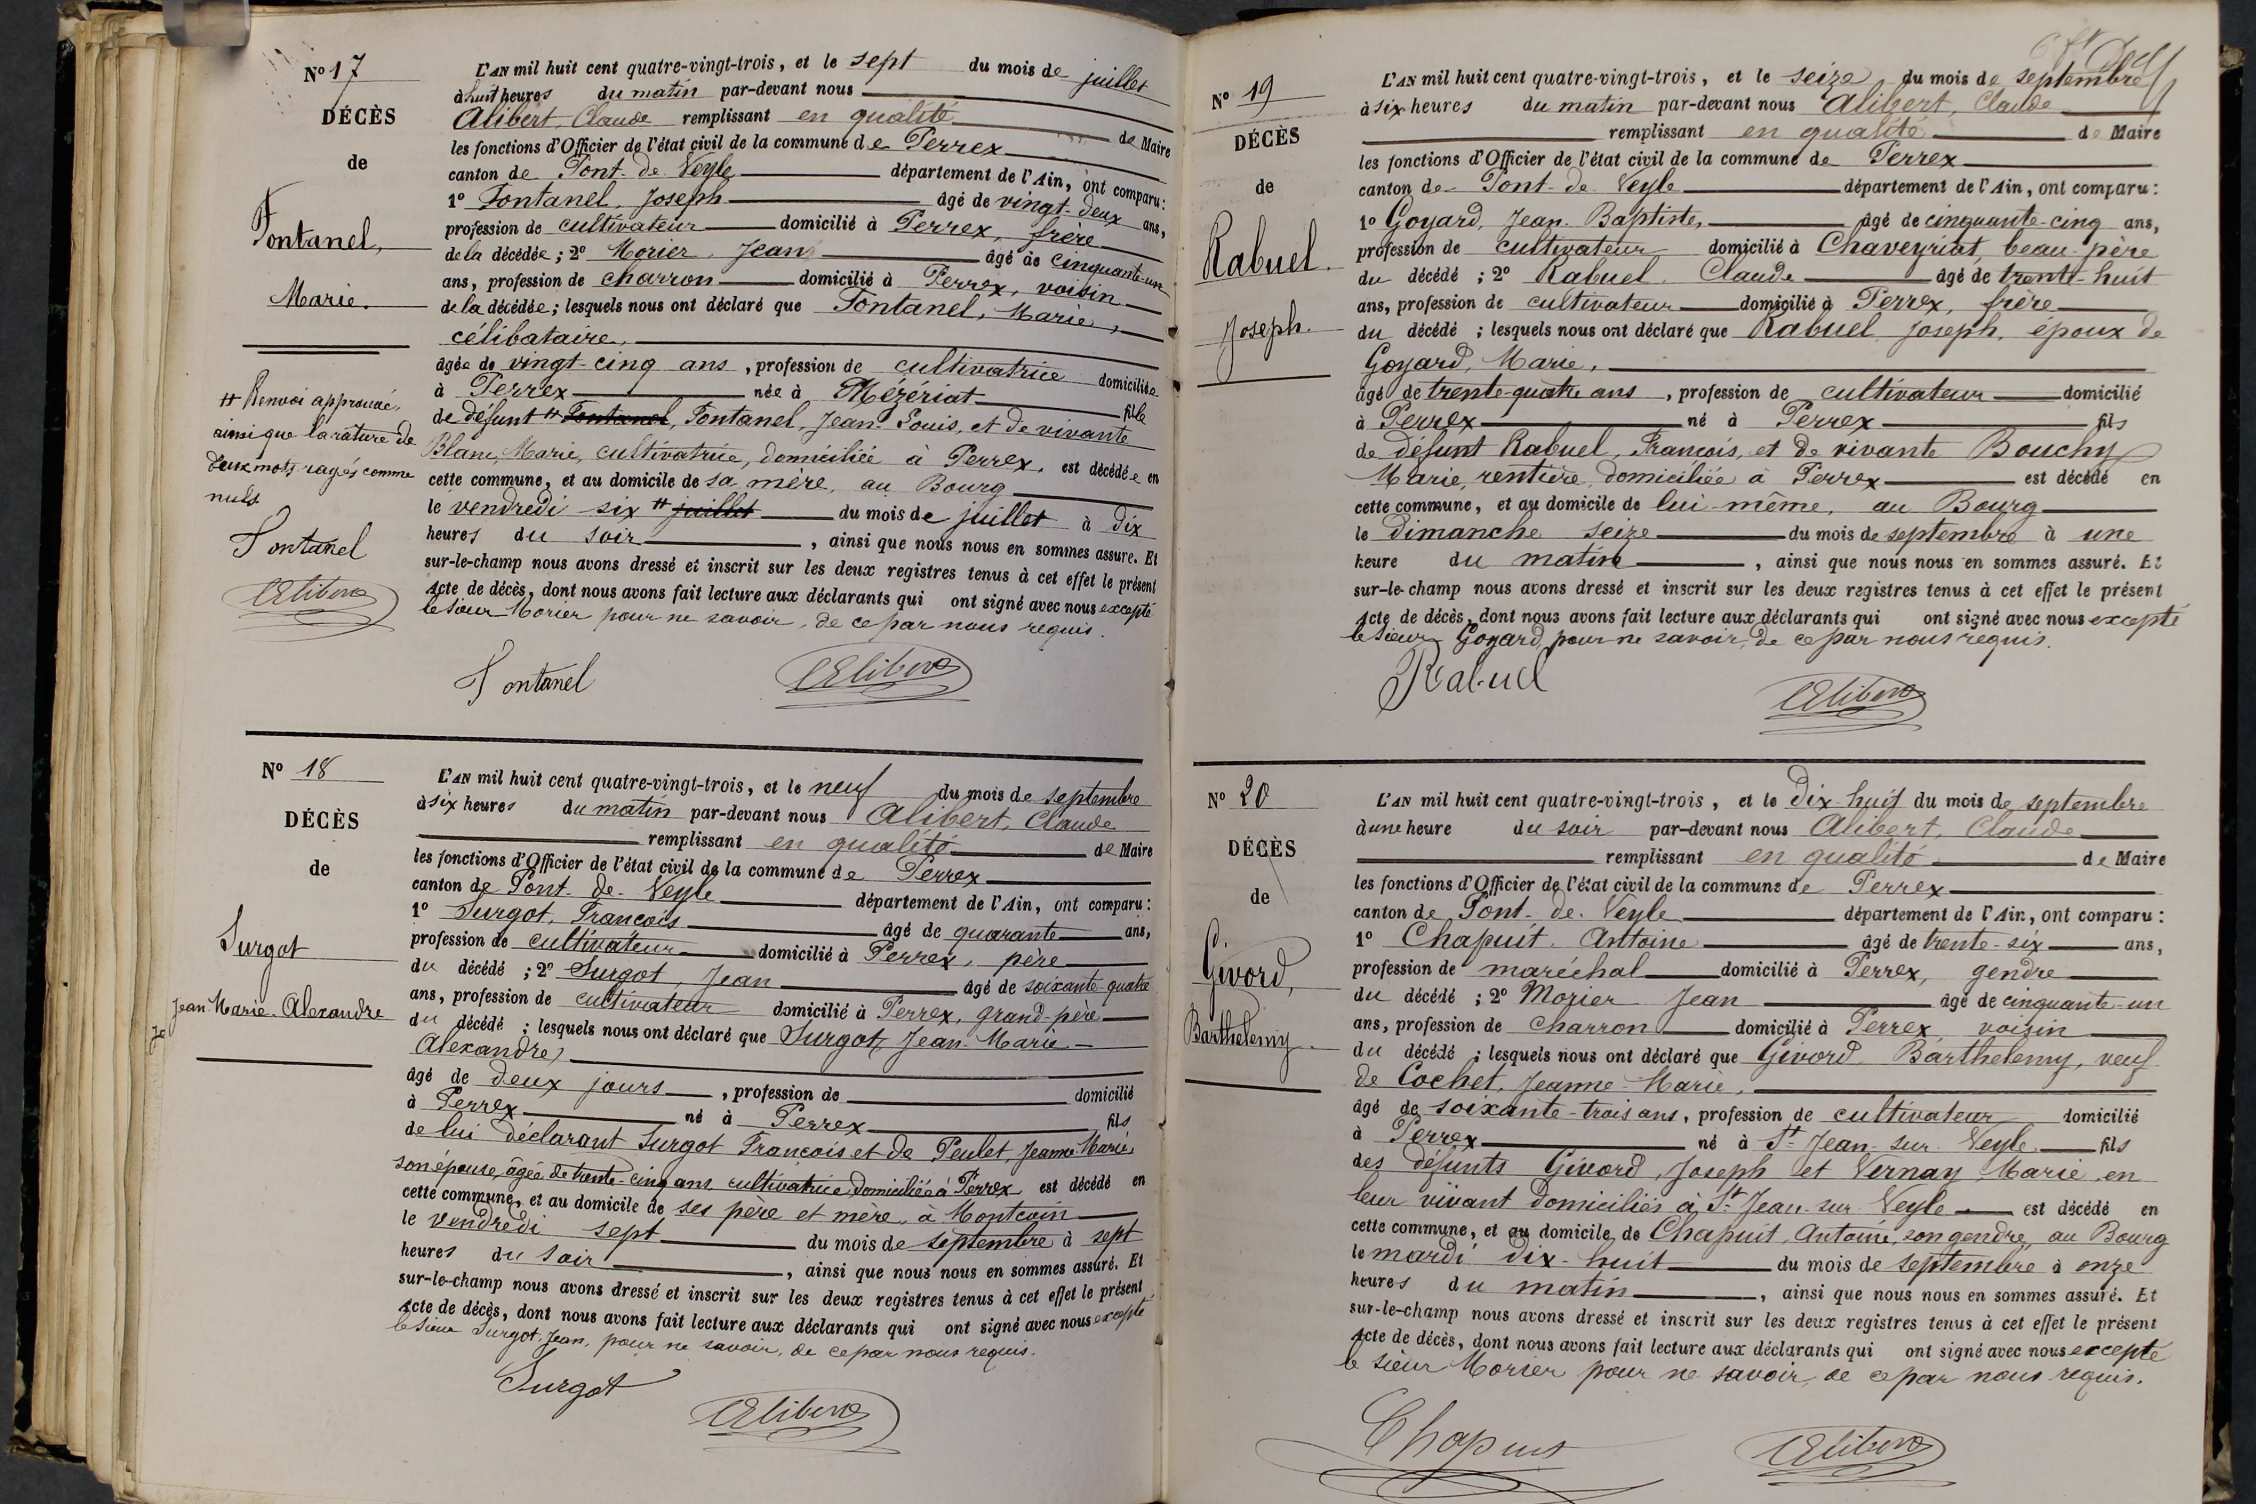 N° 17
DÉCÈS
de
Fontanel,
Marie.
L'AN mil huit cent quatre-vingt-trois, et le sept du mois de juillet
à huit heures du matin par-devant nous
Alibert, Claude remplissant en qualité de Maire
les fonctions d'Officier de l'état civil de la commune de Perrex
canton de Pont-de-Veyle département de l'Ain, ont comparu :
1° Fontanel, Joseph âgé de vingt-deux ans,
profession de cultivateur domicilié à Perrex, frère
de la décédée ; 2° Morier, Jean âgé de cinquante-un
ans, profession de charron domicilié à Perrex, voisin
de la décédée ; lesquels nous ont déclaré que Fontanel, Marie,
célibataire,
âgée de vingt-cinq ans, profession de cultivatrice domiciliée
à Perrex née à Mézériat fille
de défunt # Fontanel, Fontanel, Jean-Louis, et de vivante
Blanc, Marie, cultivatrice, domiciliée à Perrex, est décédée en
cette commune, et au domicile de sa mère, au Bourg
le vendredi six # juillet du mois de juillet à dix
heures du soir, ainsi que nous nous en sommes assuré. Et
sur-le-champ nous avons dressé et inscrit sur les deux registres tenus à cet effet le présent
Acte de décès, dont nous avons fait lecture aux déclarants qui ont signé avec nous excepté
le sieur Morier pour ne savoir, de ce par nous requis.
# Renvoi approuvé,
ainsi que la rature de
deux mots rayés comme
nuls
Fontanel
Alibert
Fontanel
Alibert
N° 18
DÉCÈS
de
Surgot
Jean-Marie-Alexandre
L'AN mil huit cent quatre-vingt-trois, et le neuf du mois de septembre
à six heures du matin par-devant nous Alibert, Claude
remplissant en qualité de Maire
les fonctions d'Officier de l'état civil de la commune de Perrex
canton de Pont-de-Veyle département de l'Ain, ont comparu :
1° Surgot, François âgé de quarante ans,
profession de cultivateur domicilié à Perrex, père
du décédé ; 2° Surgot, Jean âgé de soixante-quatre
ans, profession de cultivateur domicilié à Perrex, grand-père
du décédé ; lesquels nous ont déclaré que Surgot, Jean-Marie-
Alexandre,
âgé de deux jours, profession de domicilié
à Perrex né à Perrex fils
de lui déclarant Surgot François et de Peulet, Jeanne-Marie,
son épouse, âgée de trente-cinq ans, cultivatrice, domiciliée à Perrex est décédé en
cette commune, et au domicile de ses père et mère, à Montcoin
le vendredi sept du mois de septembre à sept
heures du soir, ainsi que nous nous en sommes assuré. Et
sur-le-champ nous avons dressé et inscrit sur les deux registres tenus à cet effet le présent
Acte de décès, dont nous avons fait lecture aux déclarants qui ont signé avec nous excepté
le sieur Surgot, Jean, pour ne savoir, de ce par nous requis.
Surgot
Alibert
N° 19
DÉCÈS
de
Rabuel.
Joseph.
L'AN mil huit cent quatre-vingt-trois, et le seize du mois de septembre
à six heures du matin par-devant nous Alibert, Claude
remplissant en qualité de Maire
les fonctions d'Officier de l'état civil de la commune de Perrex
canton de Pont-de-Veyle département de l'Ain, ont comparu :
1° Goyard, Jean-Baptiste, âgé de cinquante-cinq ans,
profession de cultivateur domicilié à Chaveyriat, beau-père
du décédé ; 2° Rabuel, Claude âgé de trente-huit
ans, profession de cultivateur domicilié à Perrex, frère
du décédé ; lesquels nous ont déclaré que Rabuel, Joseph, époux de
Goyard, Marie,
âgé de trente-quatre ans, profession de cultivateur domicilié
à Perrex né à Perrex fils
de défunt Rabuel, François, et de vivante Bouchy
Marie, rentière, domiciliée à Perrex est décédé en
cette commune, et au domicile de lui-même, au Bourg
le dimanche seize du mois de septembre à une
heure du matin, ainsi que nous nous en sommes assuré. Et
sur-le-champ nous avons dressé et inscrit sur les deux registres tenus à cet effet le présent
Acte de décès, dont nous avons fait lecture aux déclarants qui ont signé avec nous excepté
le sieur Goyard pour ne savoir, de ce par nous requis.
Rabuel
Alibert
N° 20
DÉCÈS
de
Givord,
Barthelemy
L'AN mil huit cent quatre-vingt-trois, et le dix-huit du mois de septembre
à une heure du soir par-devant nous Alibert, Claude
remplissant en qualité de Maire
les fonctions d'Officier de l'état civil de la commune de Perrex
canton de Pont-de-Veyle département de l'Ain, ont comparu :
1° Chapuit, Antoine âgé de trente-six ans,
profession de maréchal domicilié à Perrex, gendre
du décédé ; 2° Morier Jean âgé de cinquante-un
ans, profession de charron domicilié à Perrex, voisin
du décédé ; lesquels nous ont déclaré que Givord Barthelemy, veuf
de Cochet, Jeanne-Marie,
âgé de soixante-trois ans, profession de cultivateur domicilié
à Perrex né à St-Jean-sur-Veyle fils
des défunts Givord, Joseph et Vernay Marie, en
leur vivant domiciliés à St-Jean-sur-Veyle est décédé en
cette commune, et au domicile de Chapuit, Antoine, son gendre, au Bourg
le mardi dix-huit du mois de septembre à onze
heures du matin, ainsi que nous nous en sommes assuré. Et
sur-le-champ nous avons dressé et inscrit sur les deux registres tenus à cet effet le présent
Acte de décès, dont nous avons fait lecture aux déclarants qui ont signé avec nous excepté
le sieur Morier pour ne savoir, de ce par nous requis.
Chapuit
Alibert